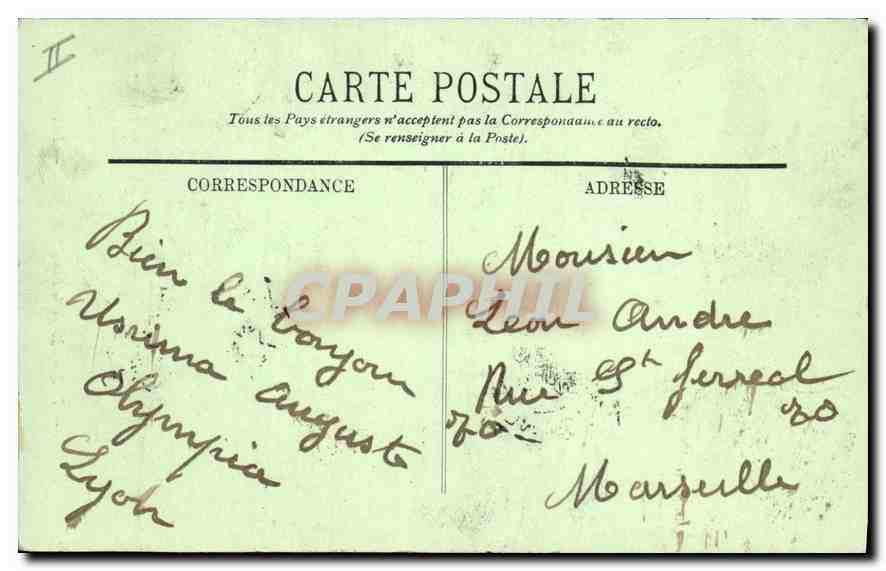 II
CARTE POSTALE
Tous les Pays étrangers n'acceptent pas la Correspondance au recto.
(Se renseigner à la Poste).
CORRESPONDANCE
Bien le bonjour
auguste
Olympia
Lyon
ADRESSE
Monsieur
Léon André
Rue St ferreol
70 70
Marseille
CPAPHIL